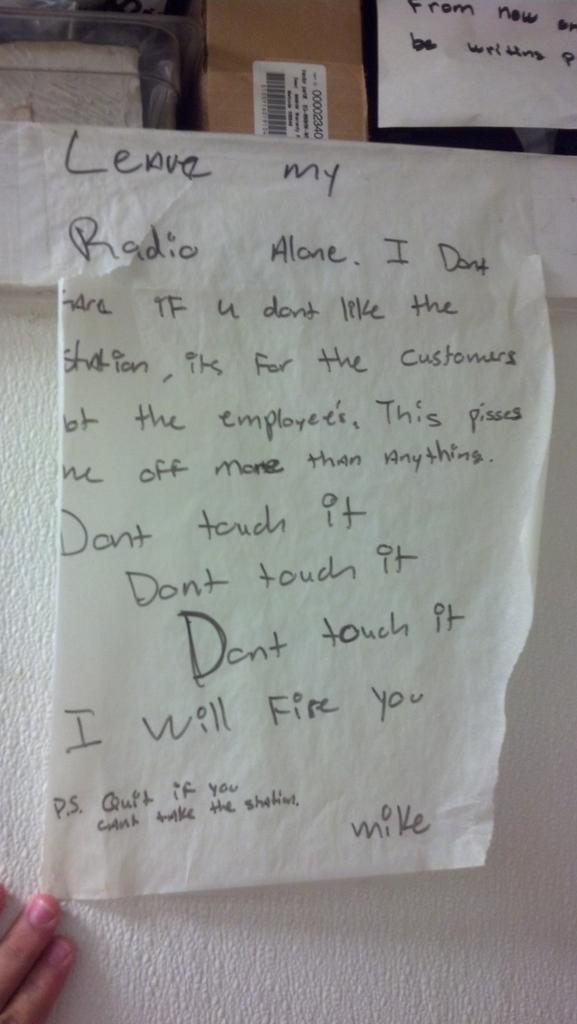 From now on
be writing p
00002340
Leave my
Radio Alone. I Dont
care if u dont like the
station, its for the customers
not the employee's. This pisses
me off more than Anything.
Dont touch it
Dont touch it
Dont touch it
I will Fire you
P.S. Quit if you
cant take the station.
mike